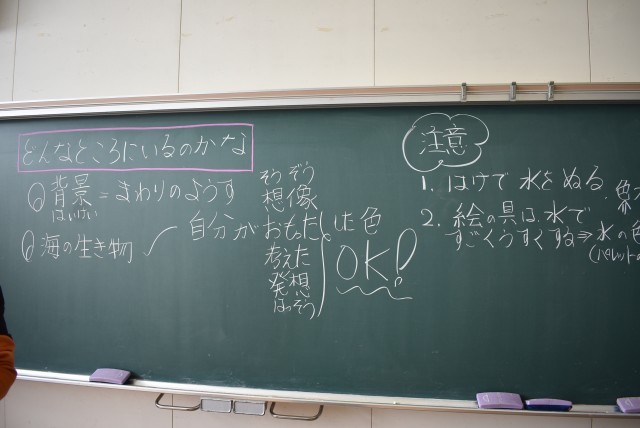 どんなところにいるのかな
◎背景=まわりのようす
はいけい
◎海の生き物
自分が
そうぞう
想像
おもった
考えた
発想
はっそう
した色
OK!
注意
1. はけで水をぬる.
2. 絵の具は水で
すごくうすくする⇒水の色
(パレットの